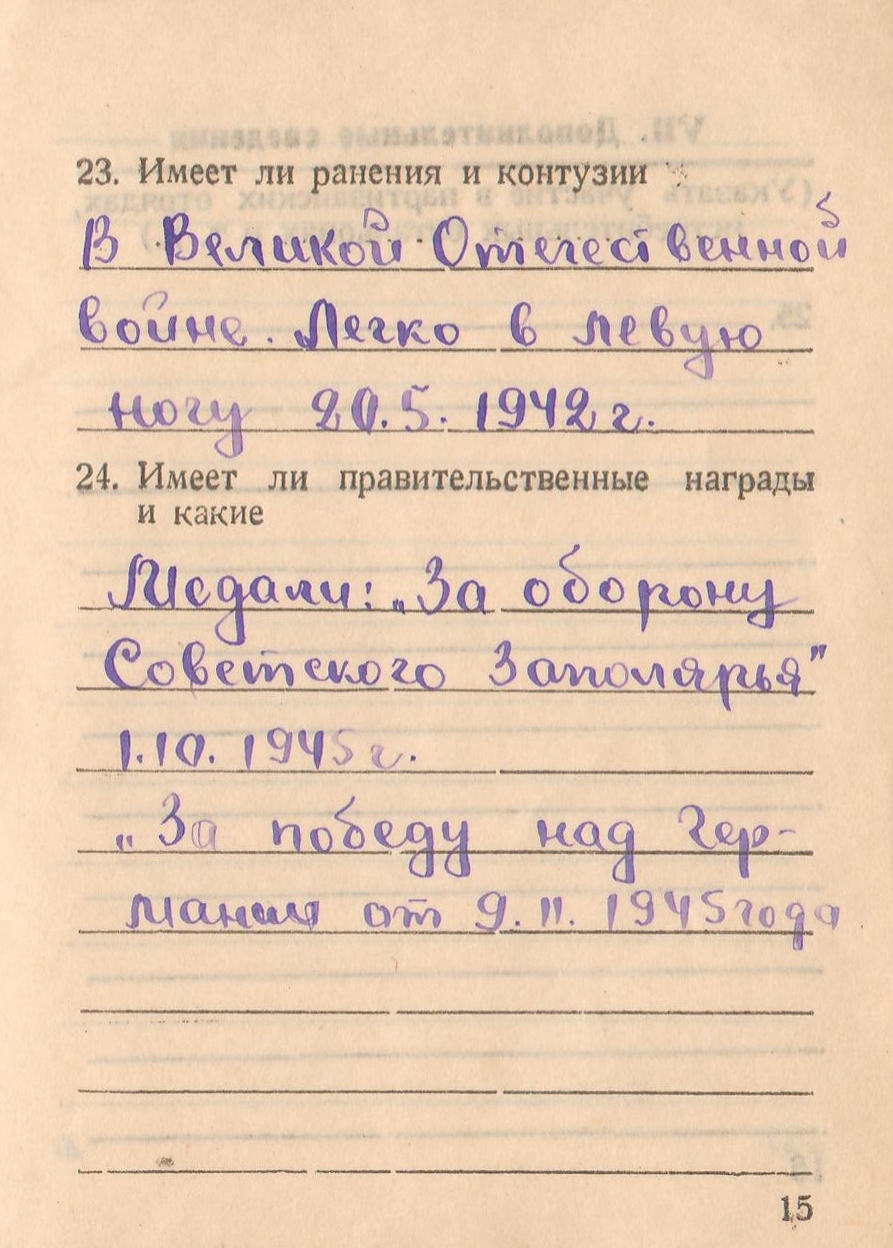 23. Имеет ли ранения и контузии
В Великой Отечественной
войне. Легко в левую
ногу 20.5.1942 г.
24. Имеет ли правительственные награды
и какие
Медали: „За оборону
Советского Заполярья"
1.10.1945 г.
„За победу над Гер-
манией от 9.11.1945 года
15